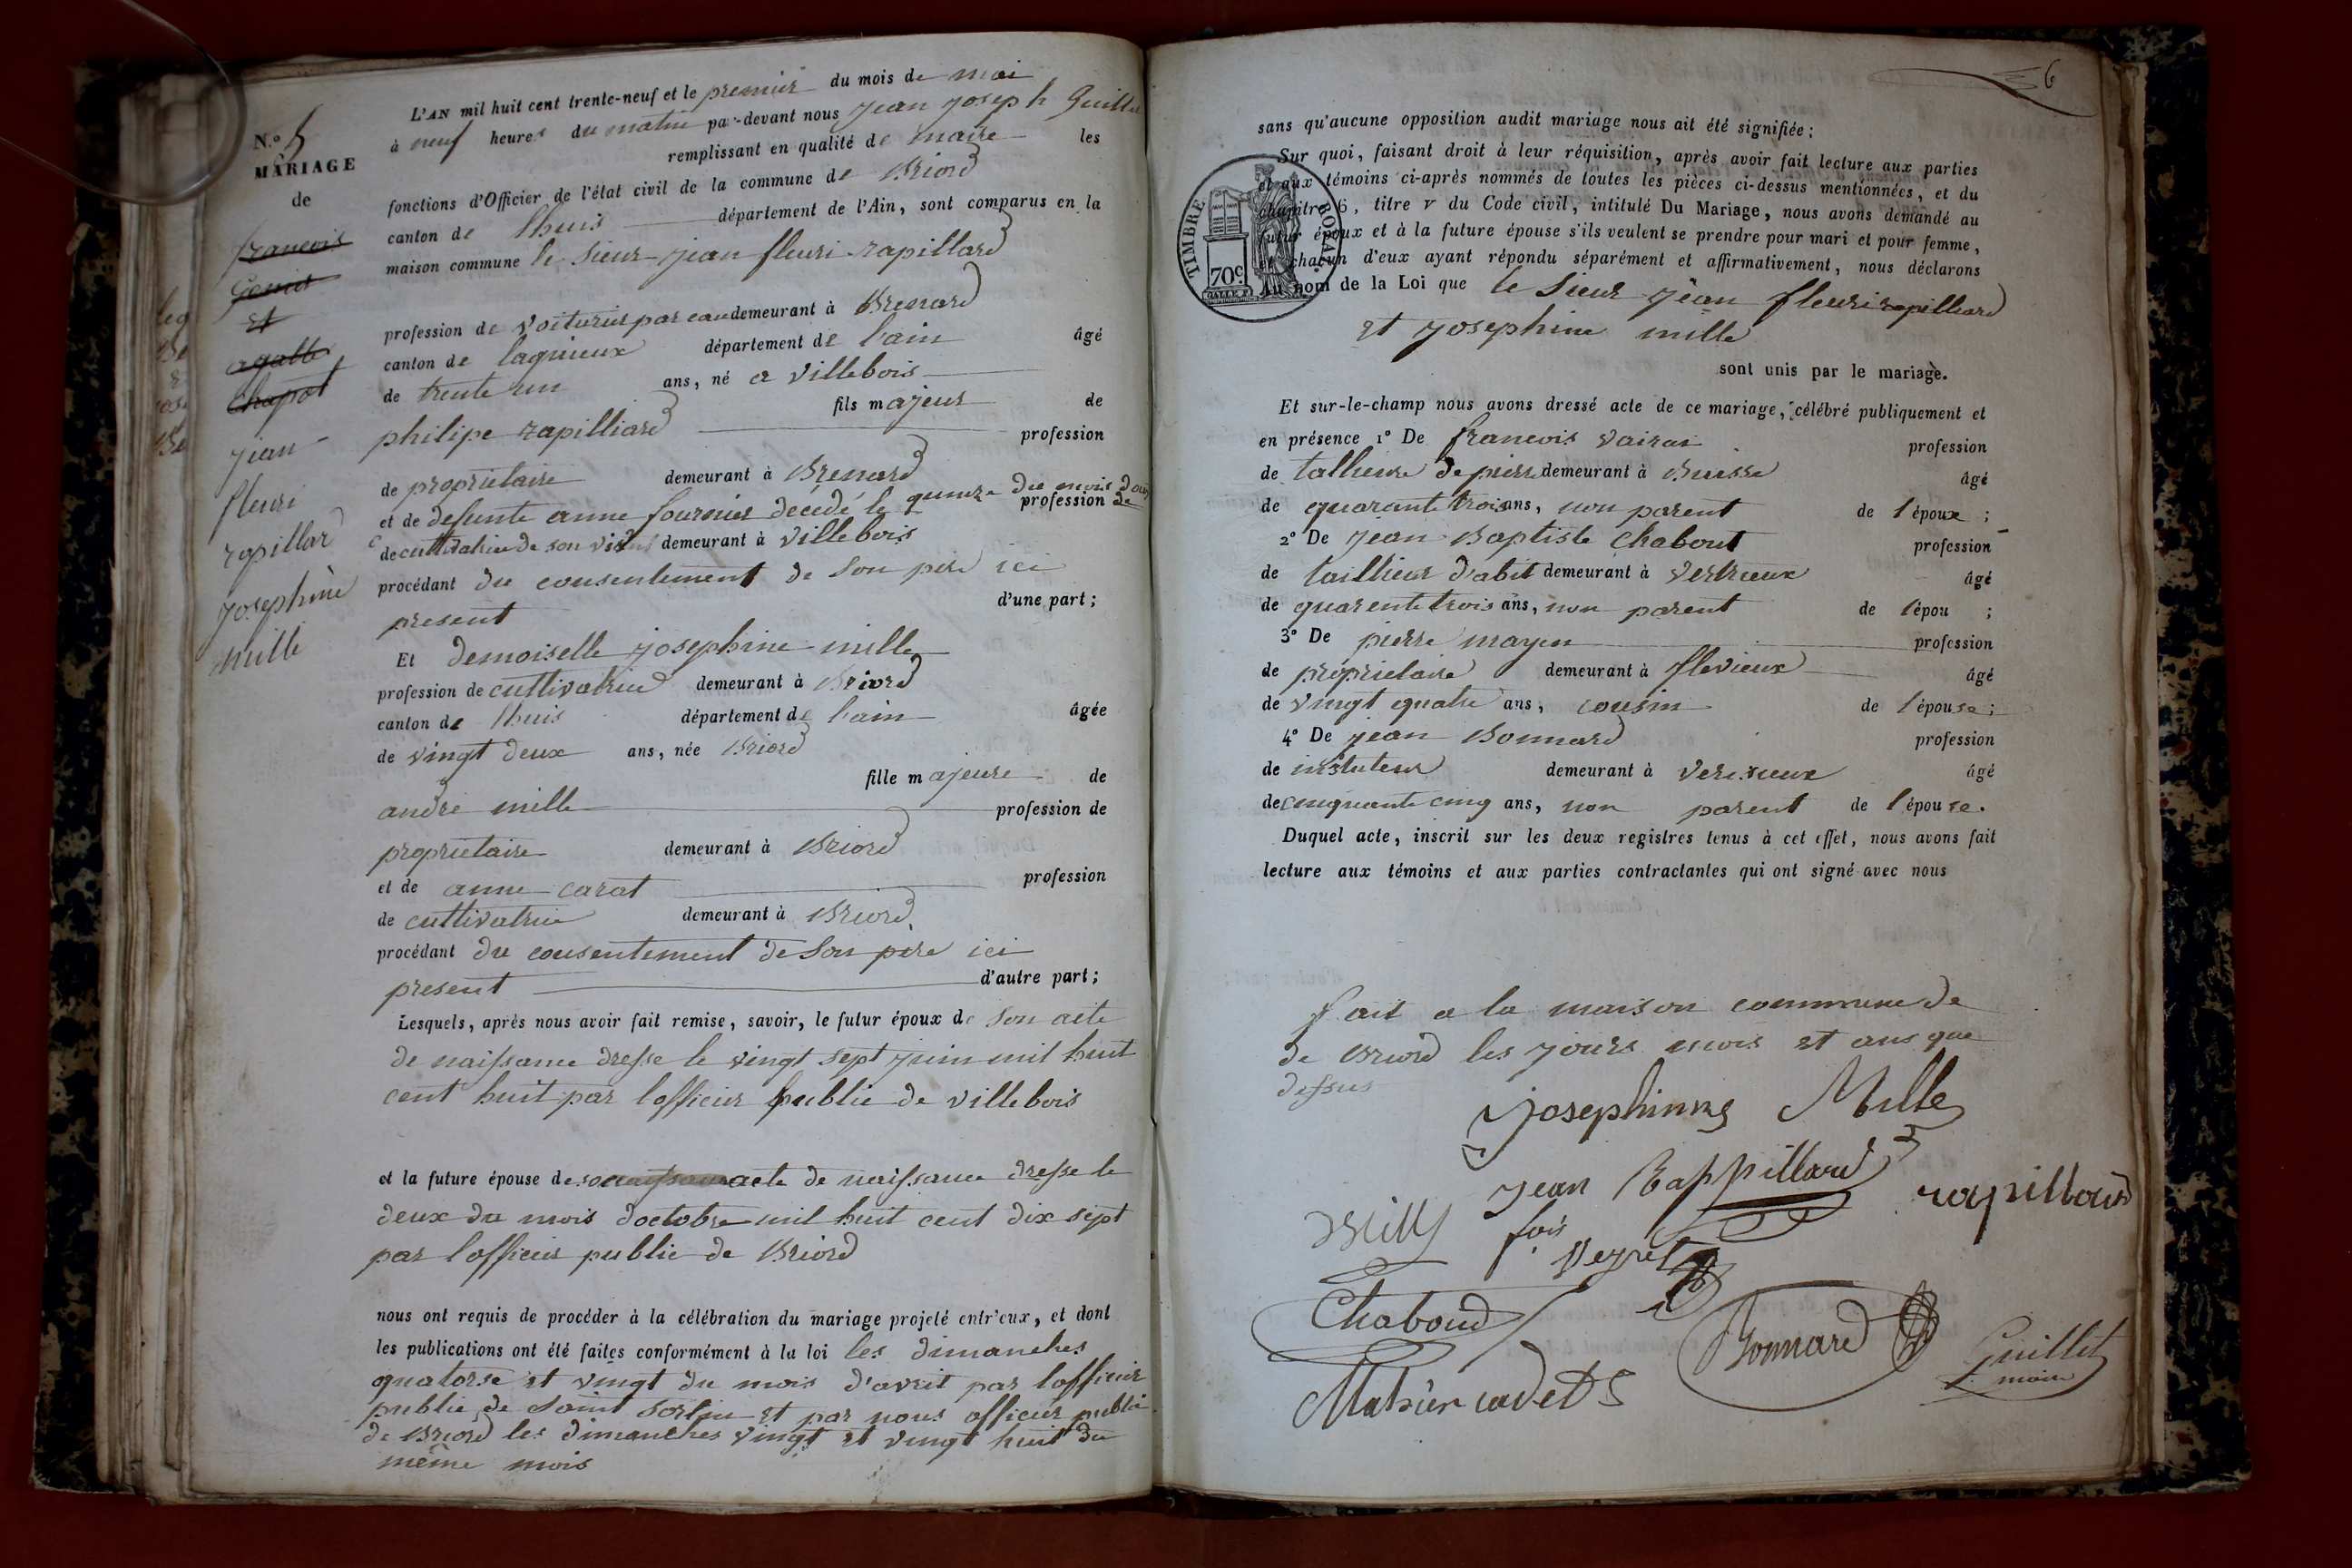 N.º 5
MARIAGE
de
francois
Genin
et
agathe
Chapot
jean
fleuri
rapillar
josephine
mille
L'AN mil huit cent trente-neuf et le premier du mois de mai
à neuf heures du matin par-devant nous jean joseph Guillet
remplissant en qualité de maire les
fonctions d'Officier de l'état civil de la commune de Briord
canton de lhuis département de l'Ain, sont comparus en la
maison commune le sieur jean fleuri rapillard
profession de voiturier par eau demeurant à Brenard
canton de lagnieux département de lain âgé
de trente un ans, né a villebois
fils majeur de
philipe rapilliard
profession
de proprietaire demeurant à Brenard
et de defunte anne fournier decédé le quinze du mois d
profession de
de cultivatrice de son vivant demeurant à villebois
procédant du consentement de son pere ici
present d'une part;
Et demoiselle josephine mille
profession de cultivatrice demeurant à Briord
canton de lhuis département de lain âgée
de vingt deux ans, née Briord
fille majeure de
andré mille profession de
proprietaire demeurant à Briord
et de anne carat profession
de cultivatrice demeurant à Briord
procédant du consentement de son pere ici
present d'autre part;
Lesquels, après nous avoir fait remise, savoir, le futur époux de son acte
de naissance dresse le vingt sept juin mil huit
cent huit par lofficier publie de villebois
et la future épouse de son acte de naissance dresse le
deux du mois doctobre mil huit cent dix sept
par lofficier publie de Briord
nous ont requis de procéder à la célébration du mariage projeté entr'eux, et dont
les publications ont été faites conformément à la loi les dimanches
quatorse et vingt du mois d'avril par lofficier
publie de saint sorlin et par nous officier publie
de Briord les dimanches vingt et vingt huit du
même mois
6
sans qu'aucune opposition audit mariage nous ait été signifiée;
Sur quoi, faisant droit à leur réquisition, après avoir fait lecture aux parties
et aux témoins ci-après nommés de toutes les pièces ci-dessus mentionnées, et du
chapitre 6, titre V du Code civil, intitulé Du Mariage, nous avons demandé au
futur époux et à la future épouse s'ils veulent se prendre pour mari et pour femme,
et chacun d'eux ayant répondu séparément et affirmativement, nous déclarons
Au nom de la Loi que le sieur jean fleuri rapilliard
et josephine mille
sont unis par le mariage.
TIMBRE ROYAL
70c.
Et sur-le-champ nous avons dressé acte de ce mariage, célébré publiquement et
en présence 1º De francois vairai profession
de tallieure de pierre demeurant à Buisse âgé
de quarante trois ans, non parent de lépoux;
2º De jean Baptiste Chabout profession
de taillieur d'abit demeurant à Vertrieux âgé
de quarente trois ans, non parent de lépou ;
3º De pierre mayen profession
de proprietaire demeurant à flevieux âgé
de vingt quatre ans, cousin de lépouse;
4º De jean Bonnard profession
de instuteur demeurant à Vertrieux âgé
de cinquante cinq ans, non parent de lépouse.
Duquel acte, inscrit sur les deux registres tenus à cet effet, nous avons fait
lecture aux témoins et aux parties contractantes qui ont signé avec nous
fait a la maison commune de
de Briord les jours mois et ans que
dessus
Josephinne Mille
jean Rappillard rapilliard
Mille fois Veyret
Chaboud Bonnard Guillet
maire
Mahier cadet